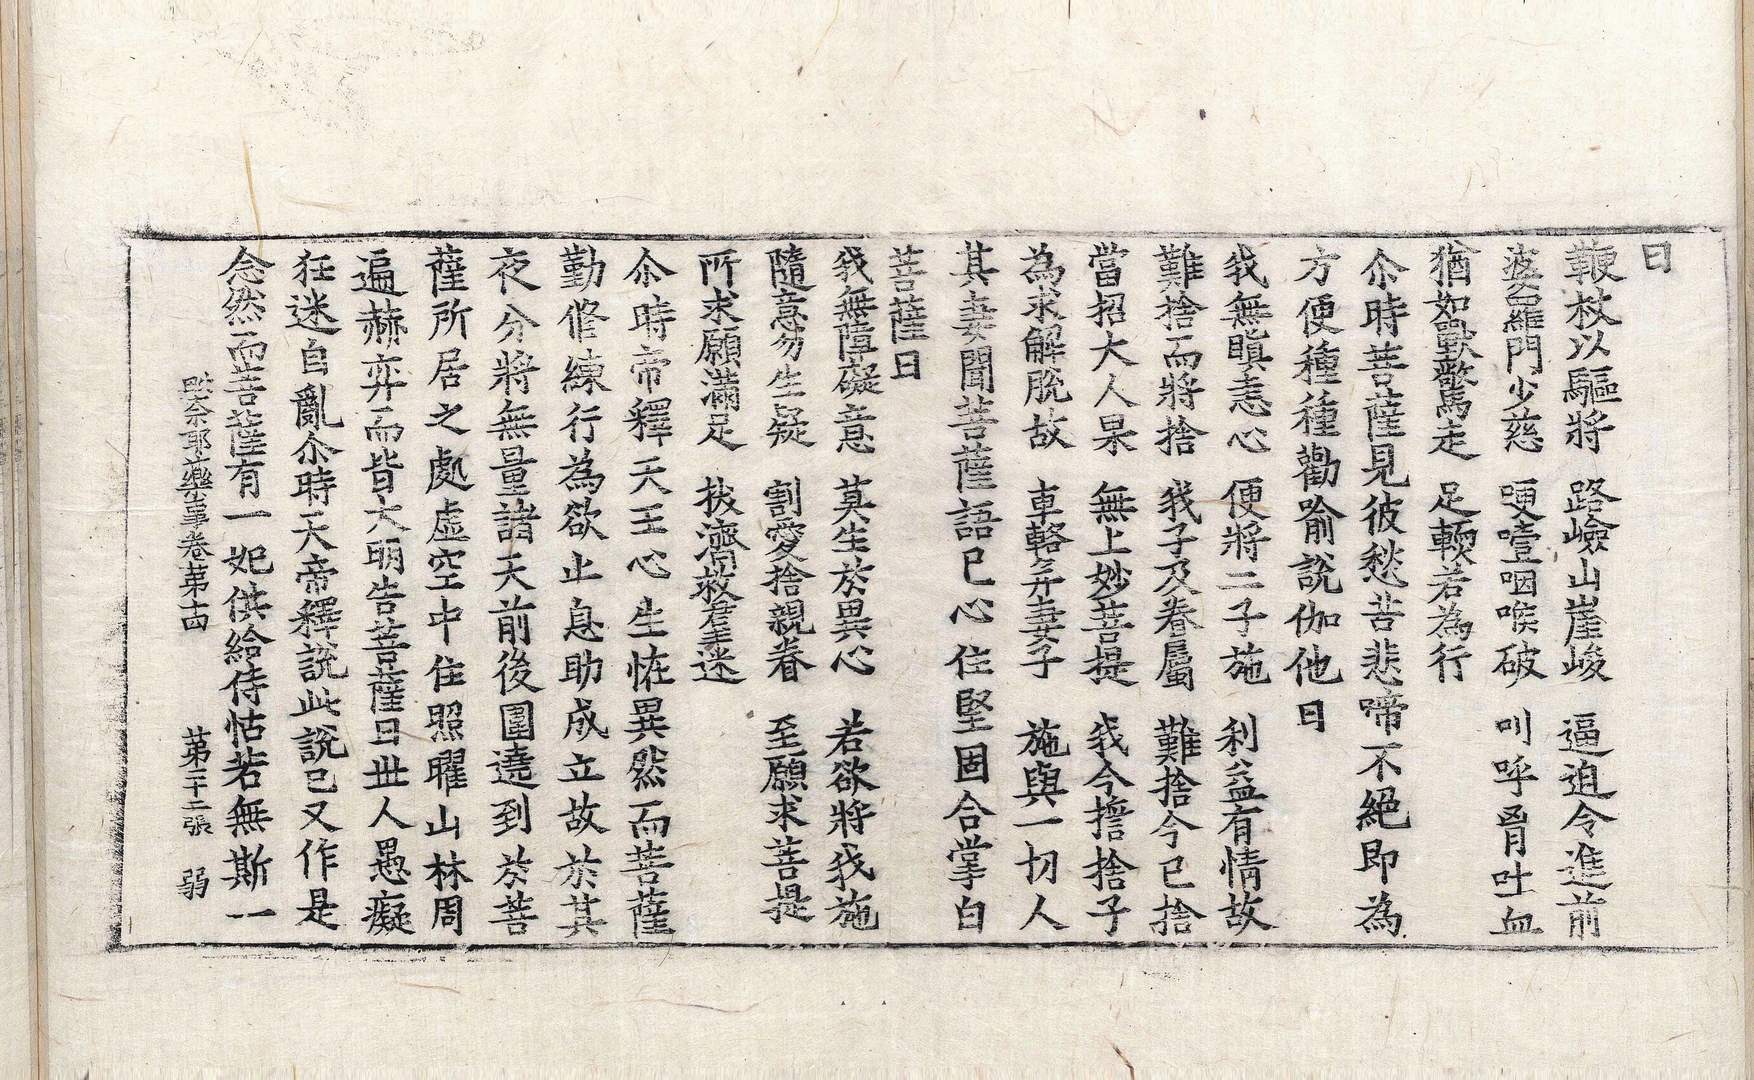 曰
鞭杖以驅將　路嶮山崖峻　逼迫令進前
婆羅門少慈　哽噎咽喉破　叫呼胷吐血
猶如獸驚走　足輭若為行
尒時菩薩見彼愁苦悲啼不絕即為
方便種種勸喻說伽他曰
我無瞋恚心　便將二子施　利益有情故
難捨而將捨　我子及眷屬　難捨今已捨
當招大人果　無上妙菩提　我今擔捨子
為求解脫故　車輅并妻子　施與一切人
其妻聞菩薩語已心住堅固合掌白
菩薩曰
我無障礙意　莫生於異心　若欲將我施
隨意勿生疑　割愛捨親眷　至願求菩提
所求願滿足　拔濟救羣迷
尒時帝釋天王心生恠異然而菩薩
勤修練行為欲止息助成立故於其
夜分將無量諸天前後圍遶到於菩
薩所居之處虛空中住照曜山林周
遍赫弈而皆大明告菩薩曰世人愚癡
狂迷自亂尒時天帝釋說此說已又作是
念然而菩薩有一妃供給侍怙若無斯一
毗奈耶藥事卷第十四　第二十二張　弱